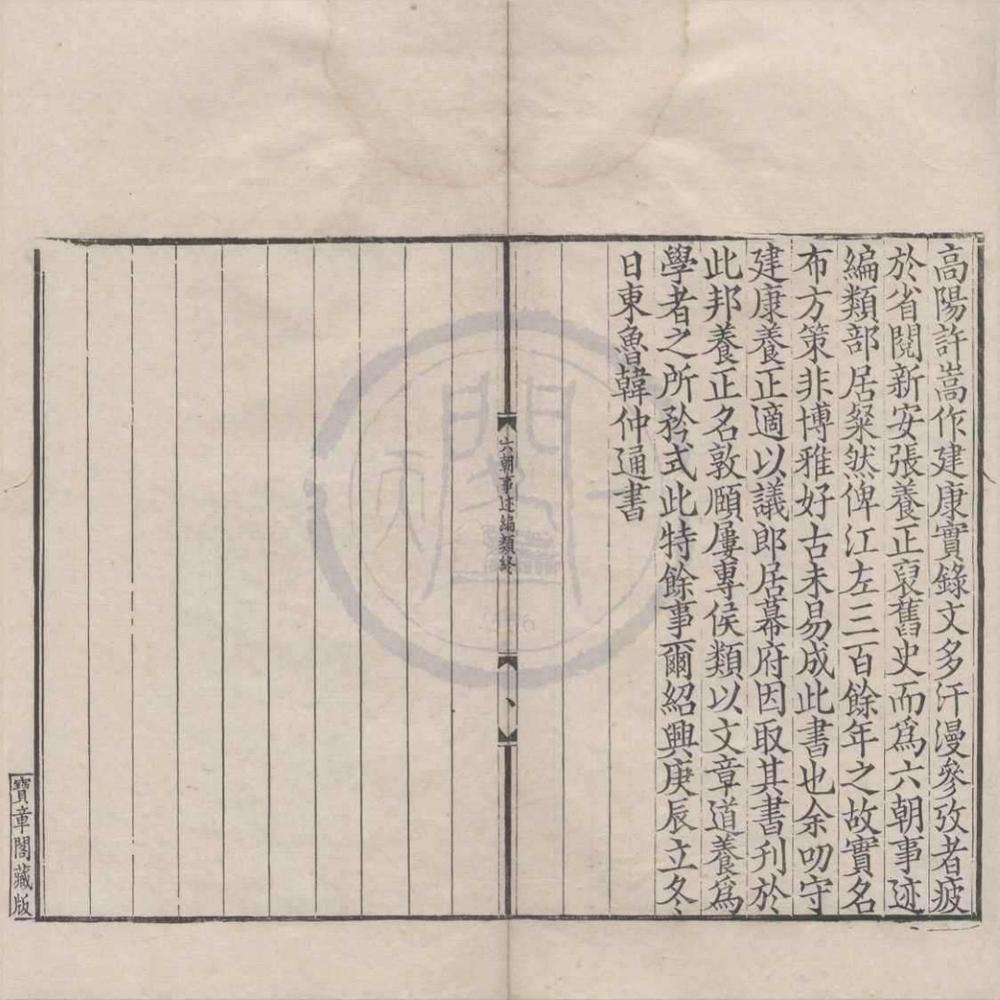 高陽許嵩作建康實錄文多汗漫參攷者疲
於省閱新安張養正裒舊史而爲六朝事迹
編類部居粲然俾江左三百餘年之故實名
布方策非博雅好古未易成此書也余叨守
建康養正適以議郎居幕府因取其書刊於
此邦養正名敦頤屢專侯類以文章道養爲
學者之所矜式此特餘事爾紹興庚辰立冬
日東魯韓仲通書
六朝事迹編類終
寶章閣藏版